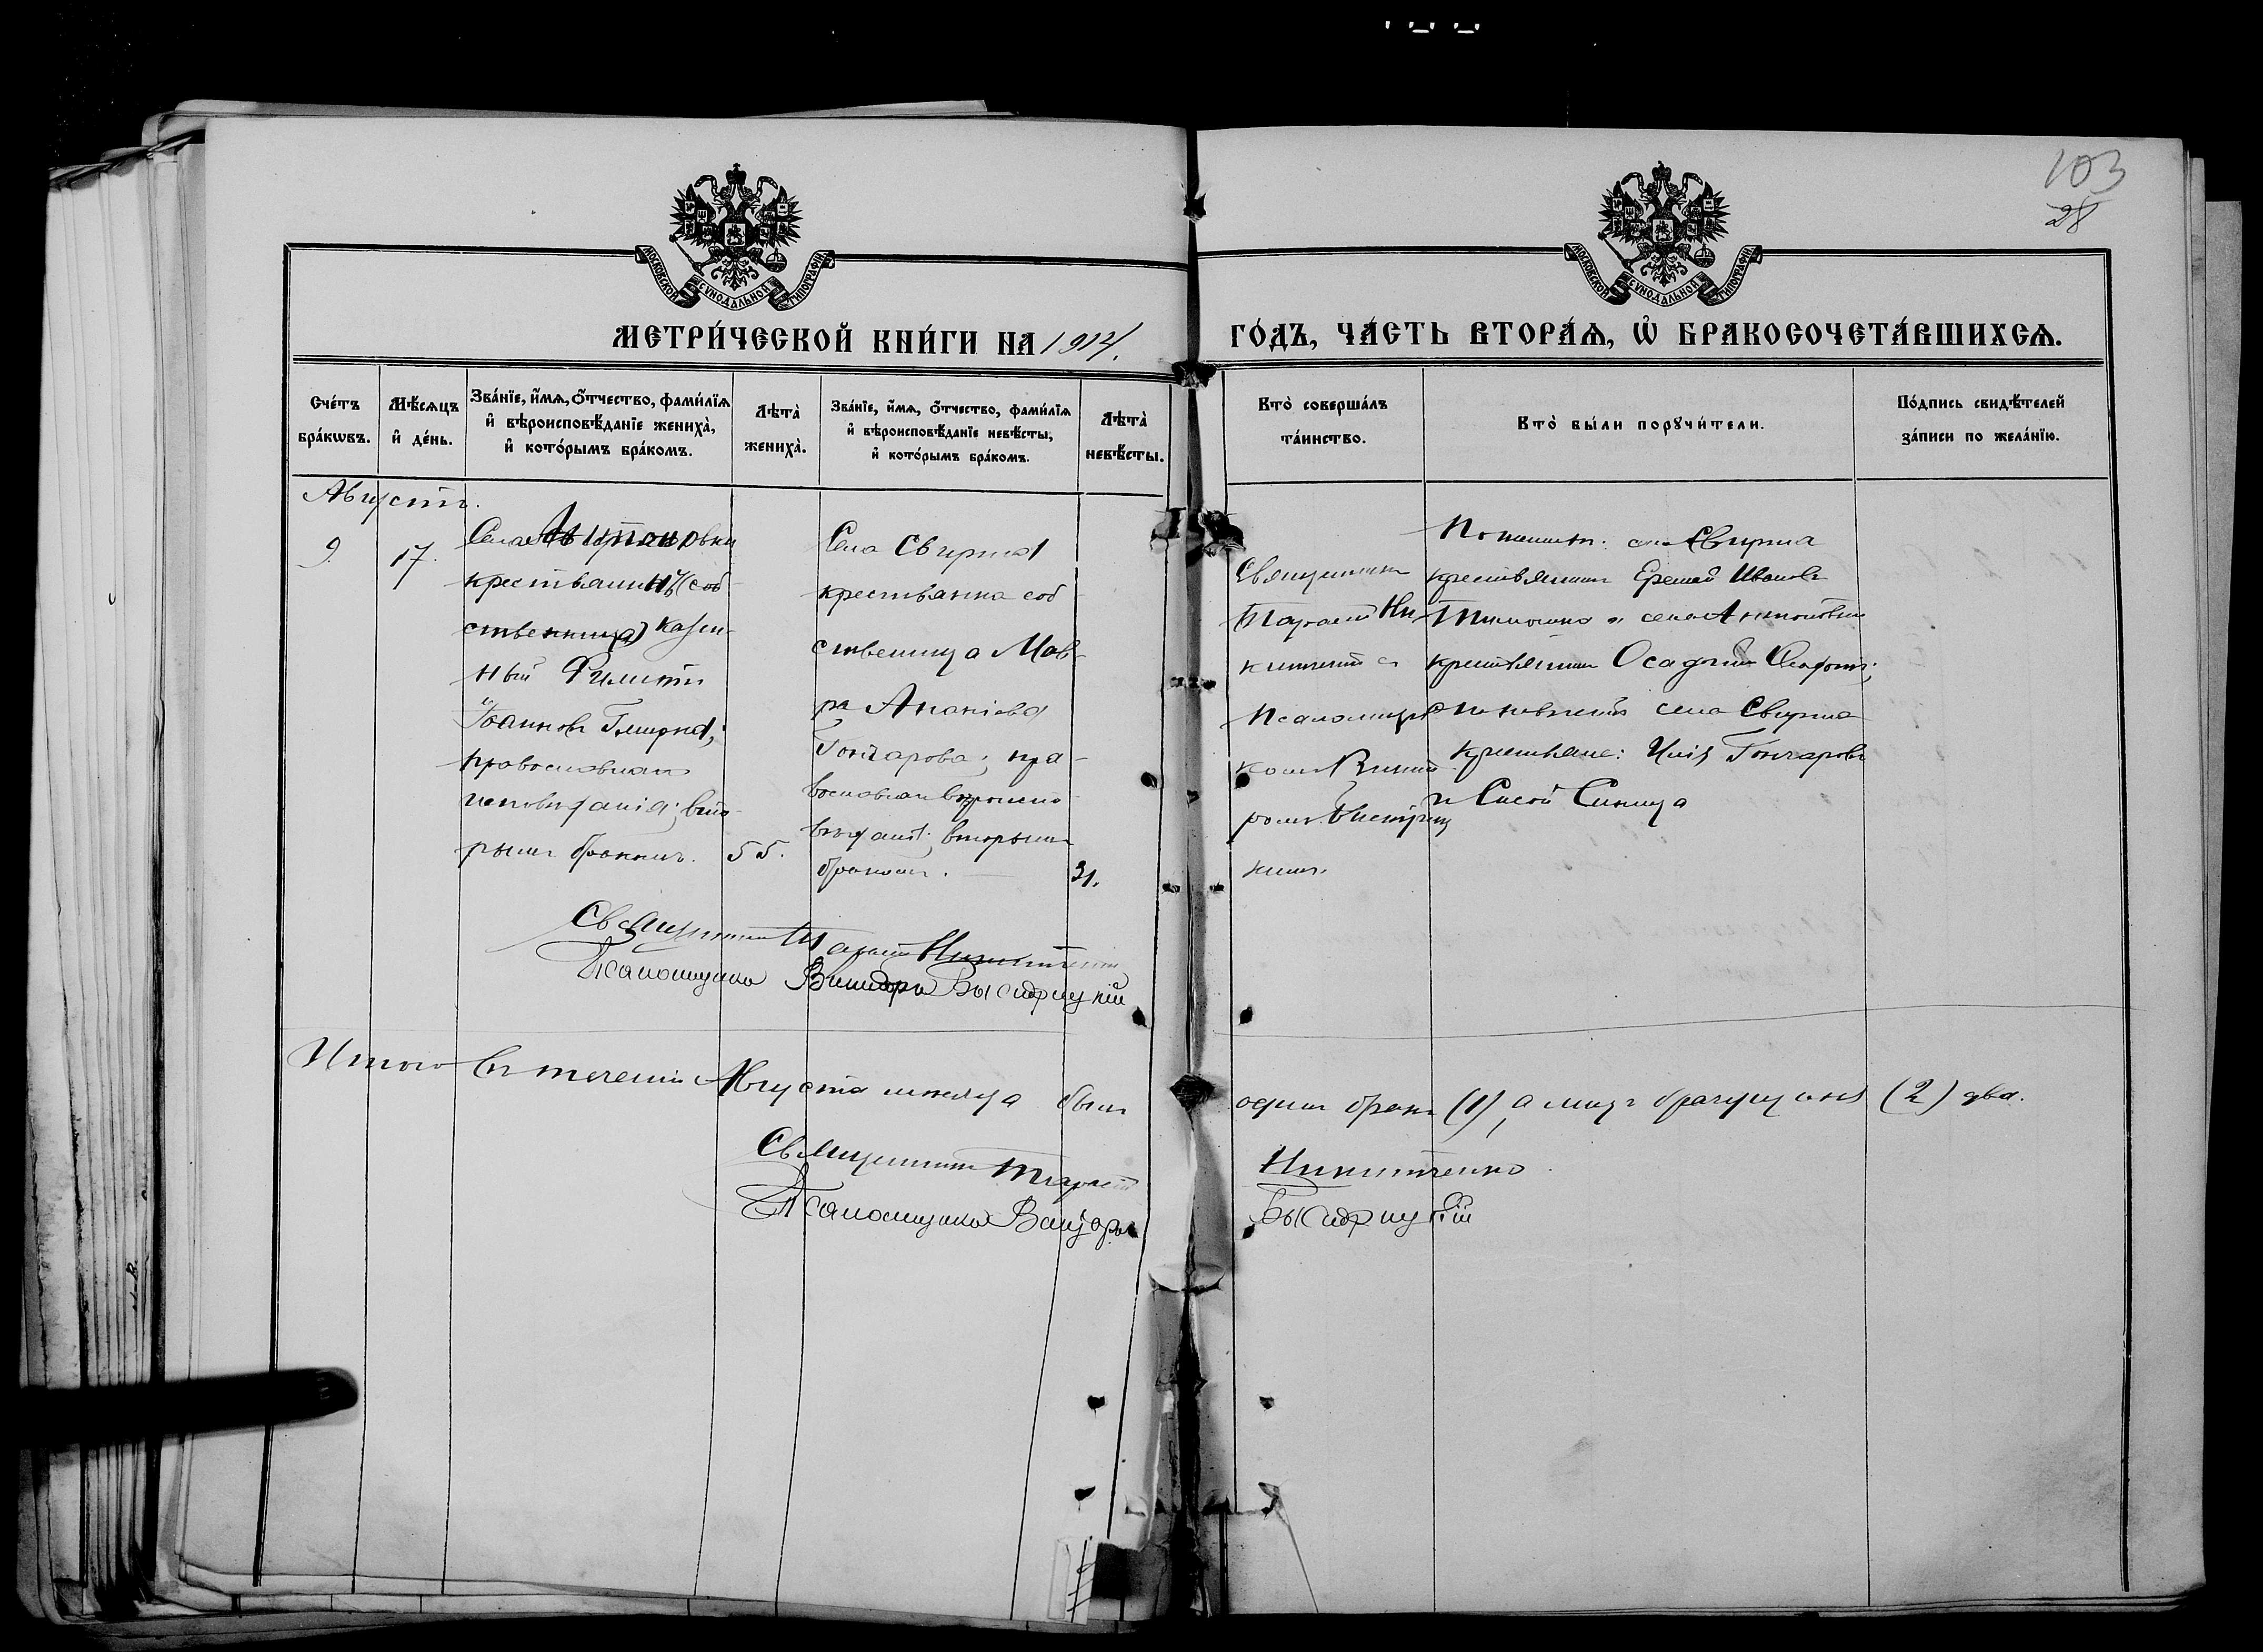 103
28
МОСКОВСКОЙ СѴНОДАЛЬНОЙ ТИПОГРАФІИ
МОСКОВСКОЙ СѴНОДАЛЬНОЙ ТИПОГРАФІИ
МЕТРИ́ЧЕСКОЙ КНИ́ГИ НА 1914. ГО́ДЪ, ЧА́СТЬ ВТОРА́Ѧ, Ѽ БРАКОСОЧЕТА́ВШИХСѦ.
Сче́тъ
бра́кѡвъ.
Мѣ́сѧцъ
и҆ де́нь.
Зва́нїе, и҆́мѧ, ѻ҆́тчество, фами́лїѧ
и҆ вѣроисповѣ́данїе жениха̀,
и҆ кото́рымъ бра́комъ.
Лѣта̀
жениха̀.
Зва́нїе, и҆́мѧ, ѻ҆́тчество, фами́лїѧ
и҆ вѣроисповѣ́данїе невѣ́сты,
и҆ кото́рымъ бра́комъ.
Лѣта̀
невѣ́сты.
Кто̀ соверша́лъ
та́инство.
Кто̀ бы́ли порꙋчи́тели.
По́дпись свидѣ́телей
за́писи по жела́нїю.
Августъ.
9.
17.
Села Антоновки
крестьянинъ (соб-
ственница) казен-
ный Филиппъ
Іоанновъ
православнаго
исповѣданія; вто-
рымъ бракомъ.
55.
Села Свирна
крестьянка соб-
ственница Мав-
ра Ананіева
Гончарова; пра-
вославнаго вѣроиспо-
вѣданія; вторымъ
бракомъ.
31.
Священникъ
Тарасій Ни-
китченко съ
псаломщи-
комъ
кимъ.
По женихѣ: села Свирна
крестьянинъ Еремей Ивановъ
Тимошко и села Антоновки
крестьянинъ
по невѣстѣ села Свирна
крестьяне: Илія Гончаровъ
и Сисой Синица
Священникъ Тарасій Никитченко
Псаломщикъ
Итого въ теченіи Августа мѣсяца былъ одинъ бракъ (1), а лицъ брачущихся (2) два.
Священникъ Тарасій Никитченко
Псаломщикъ